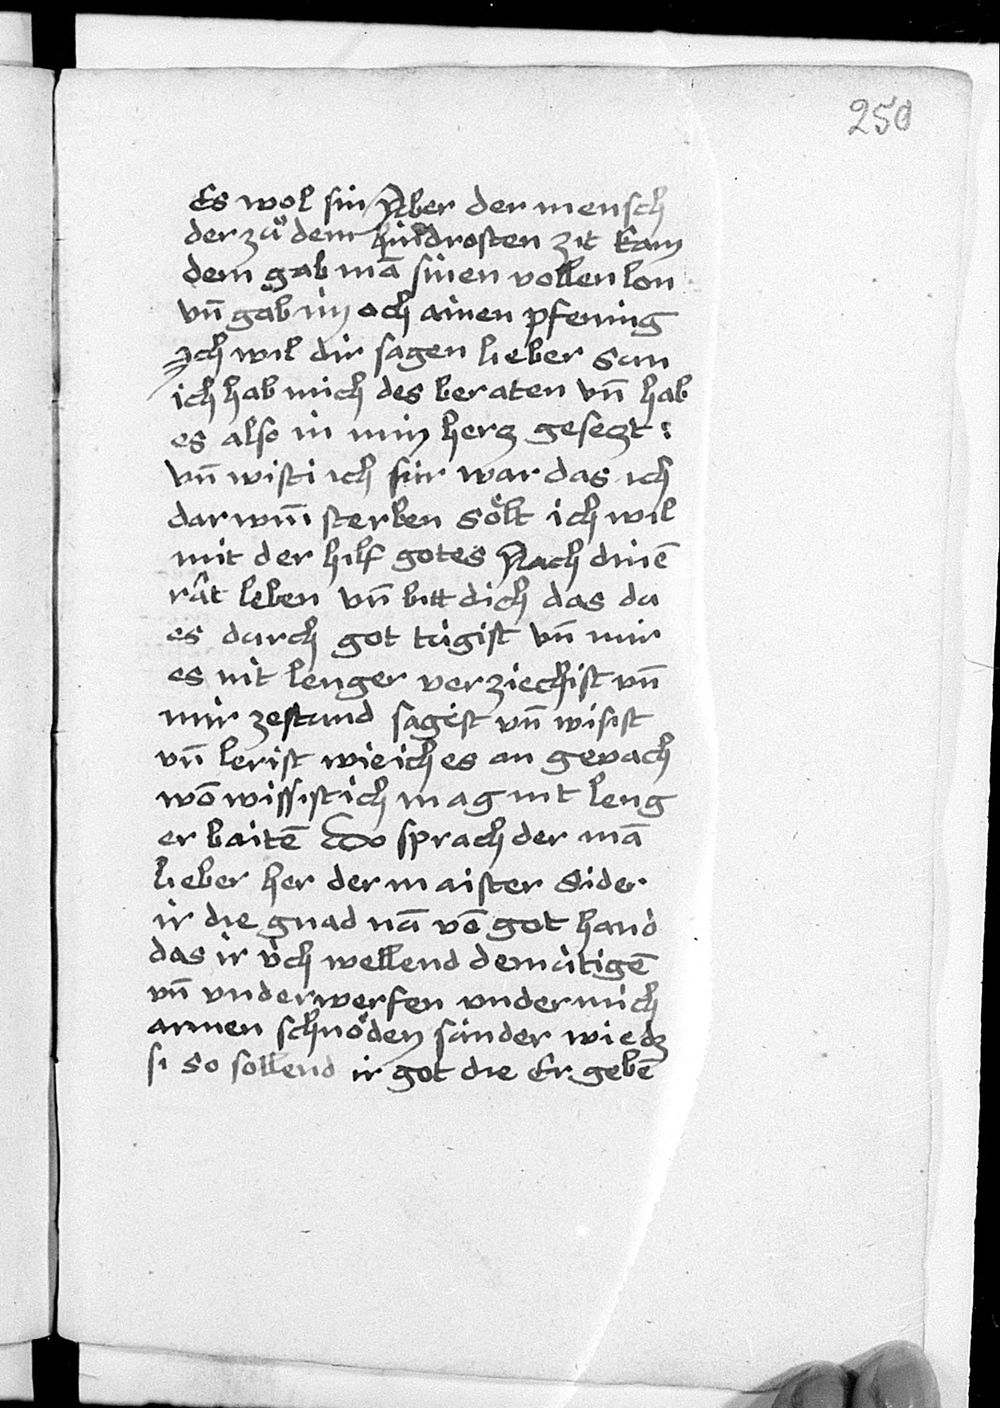 250
Es wol sin Aber der mensch
der zů dem hindrosten zit kam
dem gab mā sinen vollen lon
vn̄ gab im och ainen pfening
Ich wil dir sagen lieber sun
ich hab mich des beraten vn̄ hab
es also in min herz gesezt :
vn̄ wisti ich für war das ich
darwm̄ sterben sölt ich wil
mit der hilf gotes Nach dinē
rât leben vn̄ bitt dich das du
es durch got tügist vn̄ mir
es nit lenger verziechist vn̄
mir zestund sagist vn̄ wisist
vn̄ lerist wie ich es an gevach
wō wissist ich mag nit leng
er baitē Do sprach der mā
lieber her der maister Sider
ir die gnad nā vō got hand
das ir üch wellend demütigē
vn̄ vnderwerfen vnder mich
armen schnöden sünder wie dz
si So sollend ir got die Er gebē